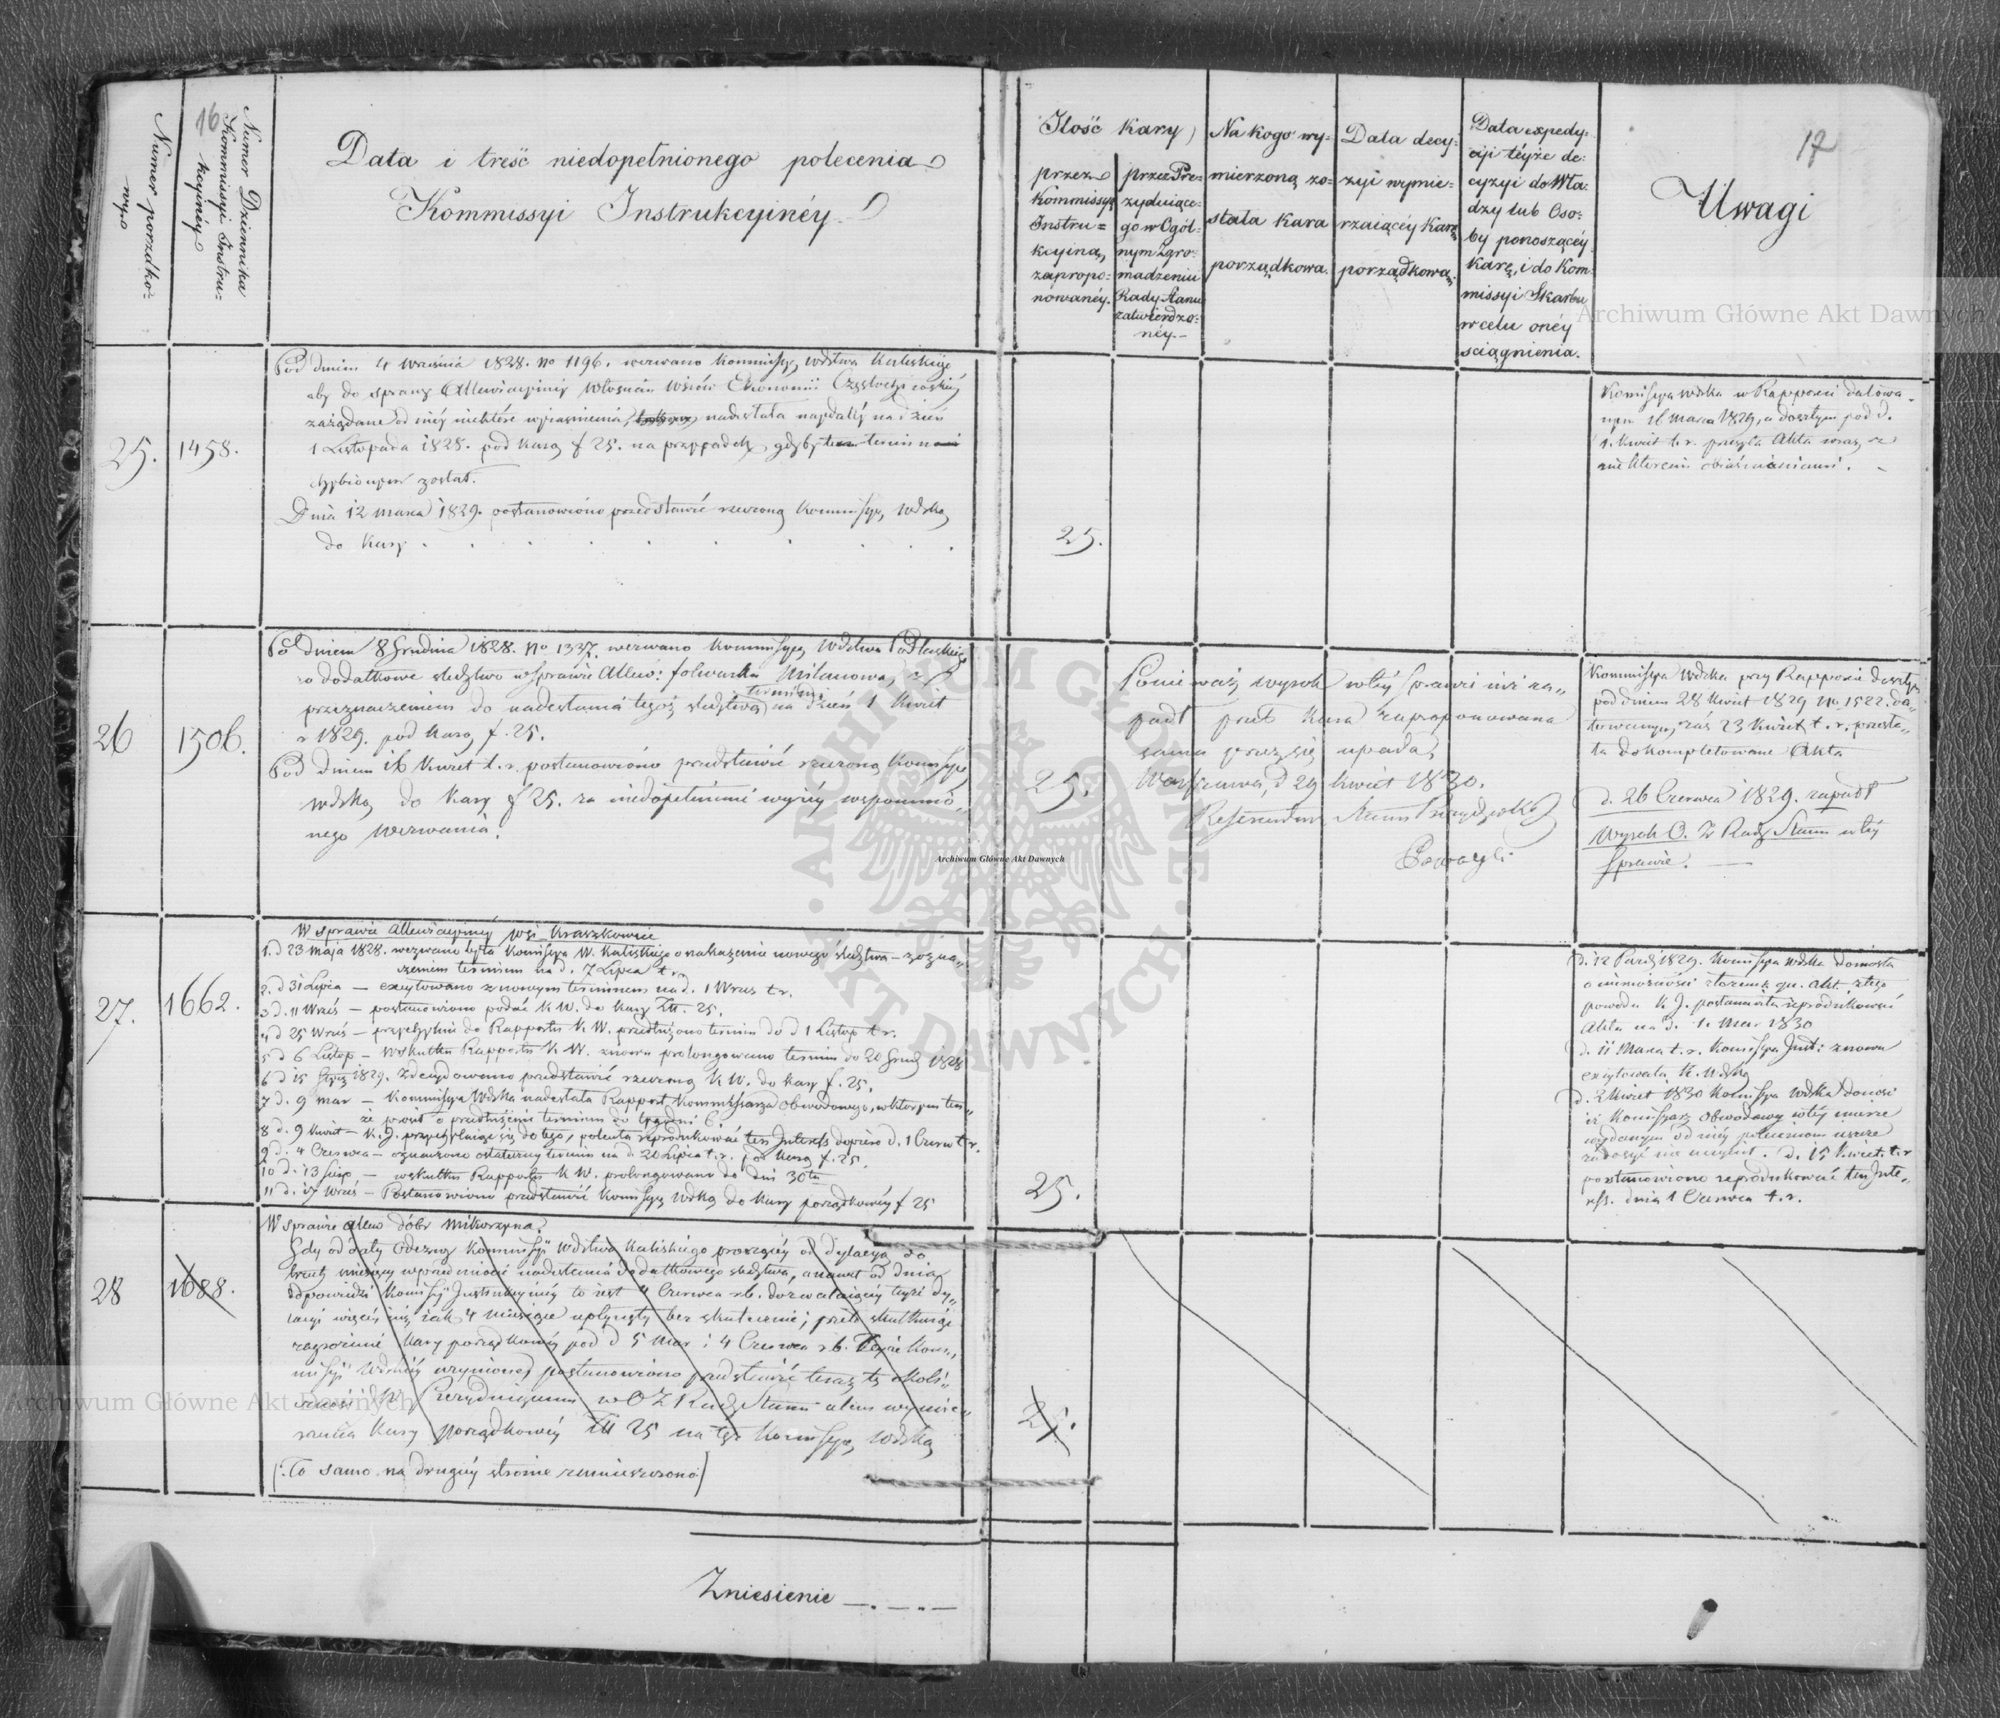 16
17
Numer porządko-
wy
Numer Dziennika
Kommissyi Instru-
kcyinéy
Data i treść niedopełnionego polecenia
Kommissyi Instrukcyinéy
Ilość kary
przez
Kommissyą
Instru=
kcyiną,
zapropo-
nowanéy.
przez Pre-
zyduiące-
go w Ogól-
nym Zgro-
madzeniu
Rady Stanu
zatwierdzo-
néy.
Na kogo wy-
mierzoną zo-
stała kara
porządkowa.
Data decy-
zyi wymie-
rzaiącéy karę
porządkową.
Data expedy-
cyi téyże de-
cyzyi do Wła-
dzy lub Oso-
by ponoszącéy
karę, i do Kom-
missyi Skarbu
w celu onéy
sciągnienia.
Uwagi
25.
1458.
Pod dniem 4 Września 1828. No 1196. wezwano Kommissyę Wdztwa Kaliskiego
aby do sprawy Allewiacyinéy Włościan Wsiów Ekonomii
zażądane od niéy niektóre wyiaśnienia, nadesłała naydaléy na dzień
1 Listopada 1828. pod karą f 25. na przypadek gdyby termin
chybionym został.
Dnia 12 Marca 1829. postanowiono przedstawić rzeczoną Kommissyę Wdzką
do kary
25.
Komissya Wdzka w Rapporcie datowa-
nym 16 Marca 1829, a doszłym pod d.
1. Kwiet t. r. przysyła Akta wraz z
niektóremi obiaśnieniami.
26
1506.
Pod dniem 8 Grudnia 1828. No 1337. wezwano Kommissyę Wdztwa Podlaskiego
o dodatkowe śledztwo w sprawie Allew: folwarku Milanowa, z
przeznaczeniem do nadesłania tegoż śledztwa terminu na dzień 1 Kwiet
r 1829. pod karą f. 25.
Pod dniem 16 Kwiet t. r. postanowiono przedstawić rzeczoną Komissyę
wdzką do kary f 25. za niedopełnienie wyżéy wspomnio-
nego wezwania.
25.
Ponieważ wyrok w téy sprawie iuż za-
padł przeto kara zaproponowana
sama przez się upada,
Warszawa, d 29 Kwiet 1830.
Kommissya Wdzka przy Rapporcie doszłym
pod dniem 28 Kwiet 1829 No 1522. da-
towanym, zaś 23 Kwiet t. r. przesła-
ła dokompletowane Akta
d. 26 Czerwca 1829. zapadł
Wyrok O. Z. Rady Stanu w téy
Sprawie.
27.
1662.
W sprawie Allewiacyinéy Wsi Kraszkowice
1. d 23 Maja 1828. wezwana była Komissya W. Kaliskiego o nakazanie nowego śledztwa – z ozna-
czeniem terminu na d. 7 Lipca t. r.
2. d 31 Lipca – excytowano z nowym terminem na d. 1 Wrześ t. r.
3 d. 11 Wrześ – postanowiono podać K W. do kary Złt. 25.
4 d 25 Wrześ – przychylnie do Rapportu K. W. przedłużono termin do d 1 Listop t. r.
5 d 6 Listop – Wskutku Rapportu K. W. znowu prolongowano termin do 20 Grud 1828
6 d 15 Stycz 1829. Zdecydowano przedstawić rzeczoną K W. do kary f. 25.
7 d. 9 Mar – Kommissya Wdzka nadesłała Rapport Kommissarza Obwodowego, w którym ten
że prosi o przedłużenie terminu do tygodni 6.
8 d. 9 Kwiet – K. J. przychylaiąc się do tego, poleciła reprodukować ten Interess dopiero d. 1 Czerw t. r.
9 d. 4 Czerwca – oznaczono ostateczny termin na d 20 Lipca t. r. pod karą f. 25.
10 d. 13 Sierp – wskutku Rapportu K W. prolongowano do dni 30tu
11 d. 17 Wrześ – Postanowiono przedstawić Komissyę Wdzką do kary porządkowéy f 25
25.
d. 12 Paźdz 1829. Komissya Wdzka doniosła
o niemożności złożenia Akt z tego
powodu K. J. postanowiła reprodukować
Akta na d. 1. Mar 1830
d. 11 Marca t. r. Komissya Inst: znowu
excytowała K. Wdzką
d. 2 Kwiet 1830 Komissya Wdzka donosi
iż Komissarz Obwodowy w téy mierze
wydanym od niéy poleceniom ieszcze
zadosyć nie uczynił. d. 15 Kwiet. t. r
postanowiono reprodukować ten Inte-
ress. dnia 1 Czerwca t. r.
28
1688.
W sprawie allew dóbr Mikorzyna.
Gdy od daty Odezwy Kommissyi Wdztwa Kaliskiego proszącéy o dylacyą do
trzech miesięcy w przedmiocie nadesłania dodatkowego śledztwa, a nawet od dnia
odpowiedzi Komissyi Instrukcyinéy to iest 4 Czerwca r. b. dozwalaiącéy teyże dy-
lacyi więcéy iuż iak 4 miesiące upłynęły bez skutecznie; przeto skutkuiąc
zagrożenie kary porządkowéy pod d 5 Mar i 4 Czerwca r. b. Teyże Kom-
missyi Wdzkiéy uczynione postanowiono przedstawić teraz tę okoli-
czność Prezyduiącemu w O Z Rady Stanu celem wymie-
rzenia kary porządkowéy Złt 25 na tęż Komissyę Wdzką
(: To samo na drugiéy stronie zamieszczono)
25.
Zniesienie
Archiwum Główne Akt Dawnych
Archiwum Główne Akt Dawnych
Archiwum Główne Akt Dawnych
ARCHIWUM GŁÓWNE AKT DAWNYCH